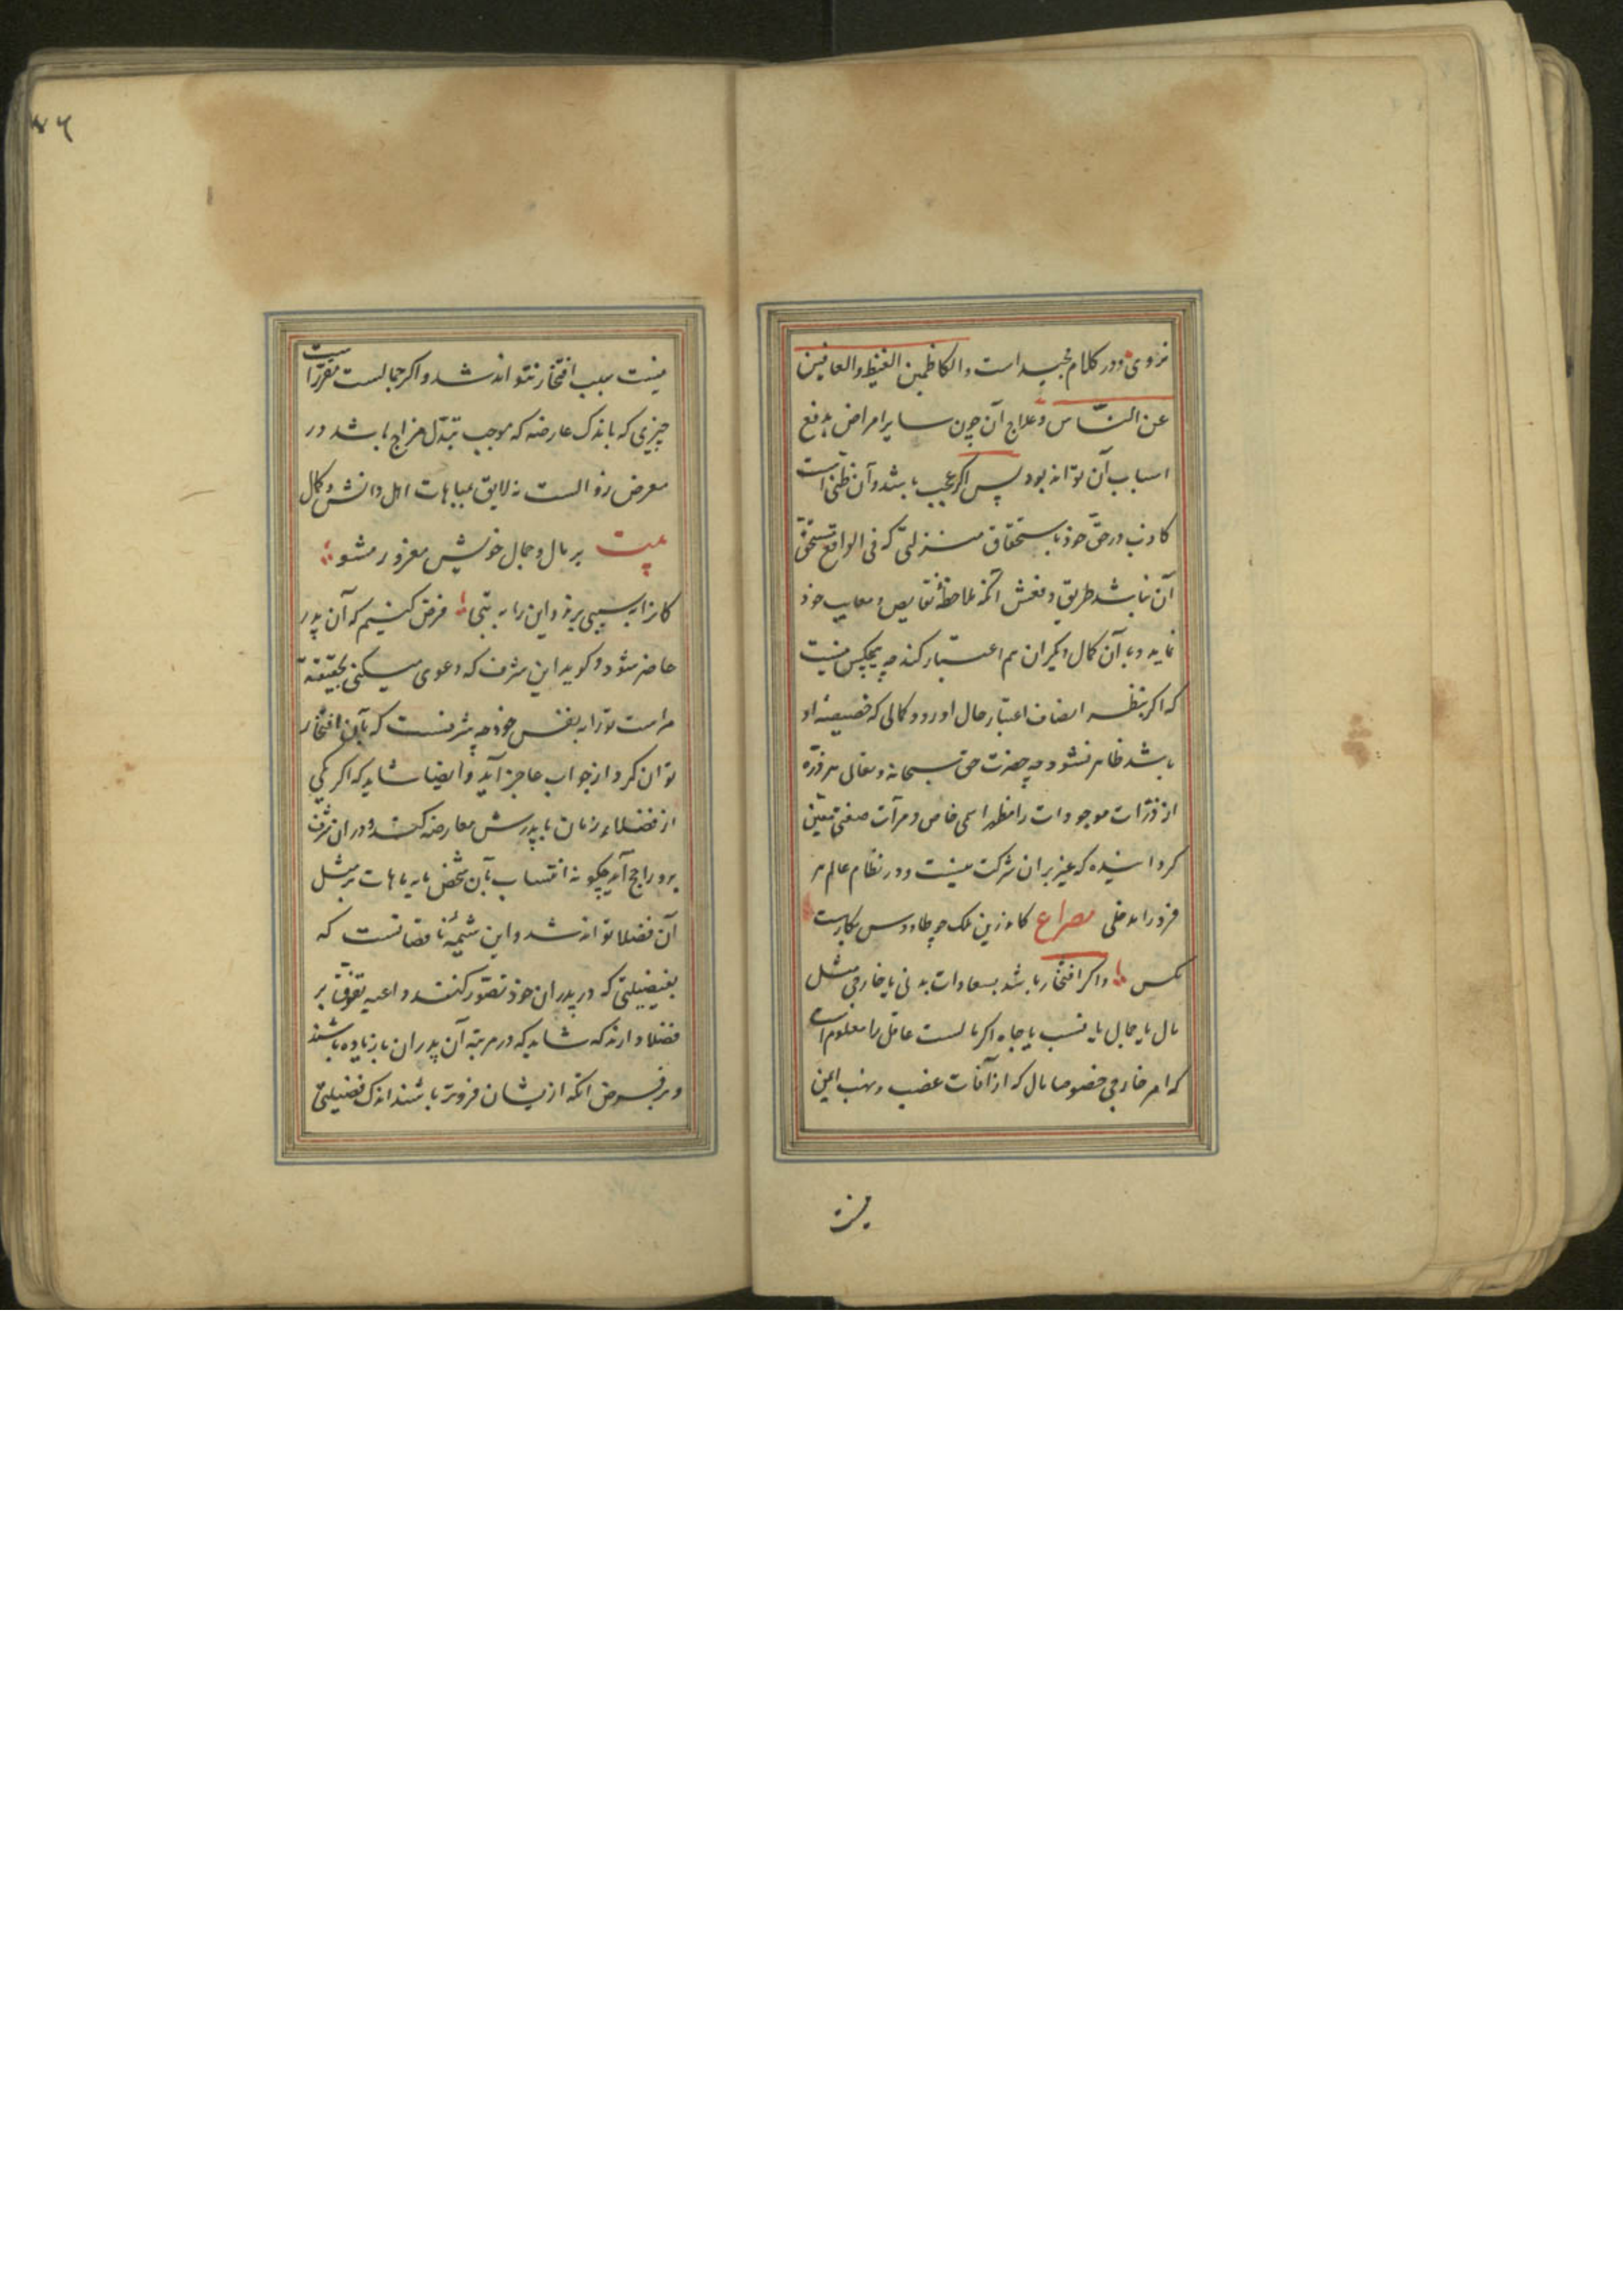 نروی و در کلام مجید است والکاظمین الغیظ والعافین
عن النّاس و علاج آن چون سایر امراض بدفع
اسباب آن تواند بود پس اکر عجب باشد و آن ظنی است
کاذب در حقّ خود باستحقاق منزلتی که فی الواقع مستحقّ
آن نباشد طریق دفعش آنکه ملاحظهٔ نقایص و معایب خود
نماید و بآن کمال دیکران هم اعتبار کند چه هیچکس نیست
که اکر بنظر انصاف اعتبار حال او رود کمالی که خصیصهٔ او
باشد ظاهر نشود چه حضرت حق سبحانه و تعالی هر ذرّه
از ذرّات موجودات را مظهر اسمی خاص و مرآت صفتی معیّن
کردانیده که غیر بر ان شرکت نیست و در نظام عالم هر
فرد را مدخلی مصراع کاندرین ملک چو طاووس بکارست
مکس واکر افتخار باشد بسعادات بدنی یا خارجی مثل
مال یا جمال یا نسب یا جاه اکر مالست عاقل را معلوم است
که امر خارجی خصوصا مال که از آفات غصب و نهب ایمن
نیست
٤٦
نیست سبب افتخار نتواند شد و اکر جمالست مقرّر است
چیزی که باندک عارضه که موجب تبدّل مزاج باشد در
معرض زوالست نه لایق مباهات اهل دانش و کمال
بیت بر مال و جمال خویش مغرور مشو
کانرا بشبی برند و این را به تبی فرض کنیم که آن پدر
حاضر شود و کوید این شرف که دعوی میکنی بحقیقة
مراست تو را به نفس خود چه شرفست که بآن افتخار
توان کرد از جواب عاجز آید و ایضا شاید که اکر یکی
از فضلاء زمان با پدرش معارضه کند و در ان شرف
برو راجح آید چکونه انتساب بآن شخض مایه مباهات بر مثل
آن فضلا تواند شد و این شیمهٔ ناقصانست که
بفضیلتی که در پدران خود تصّور کنند داعیه تفوّق بر
فضلا دارند که شاید که در مرتبهٔ آن پدران یا زیاده باشند
و بر فرض انکه ازیشان فروتر باشند اندک فضیلتی